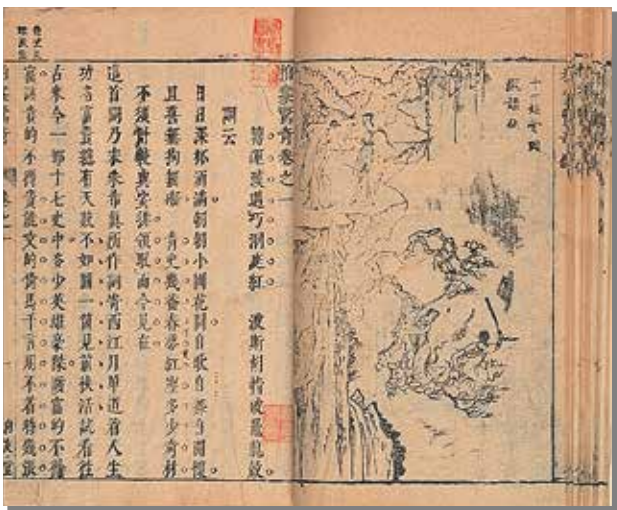 拍案驚奇卷之一
轉運漢遇巧洞庭紅 波斯胡指破鼉龍殼
詞云
日日深杯酒滿朝朝小圃花開自歌自舞自開懷
且喜無拘無礙 青史幾番春夢紅塵多少奇材
不須計較與安排領取而今見在
這首詞乃宋朱希真所作詞寄西江月單道着人生
功名富貴總有天數不如圖一箇見前快活試看往
古來今一部十七史中多少英雄豪傑該富的不得
富該貴的不得貴能文的倚馬千言用不着時幾張